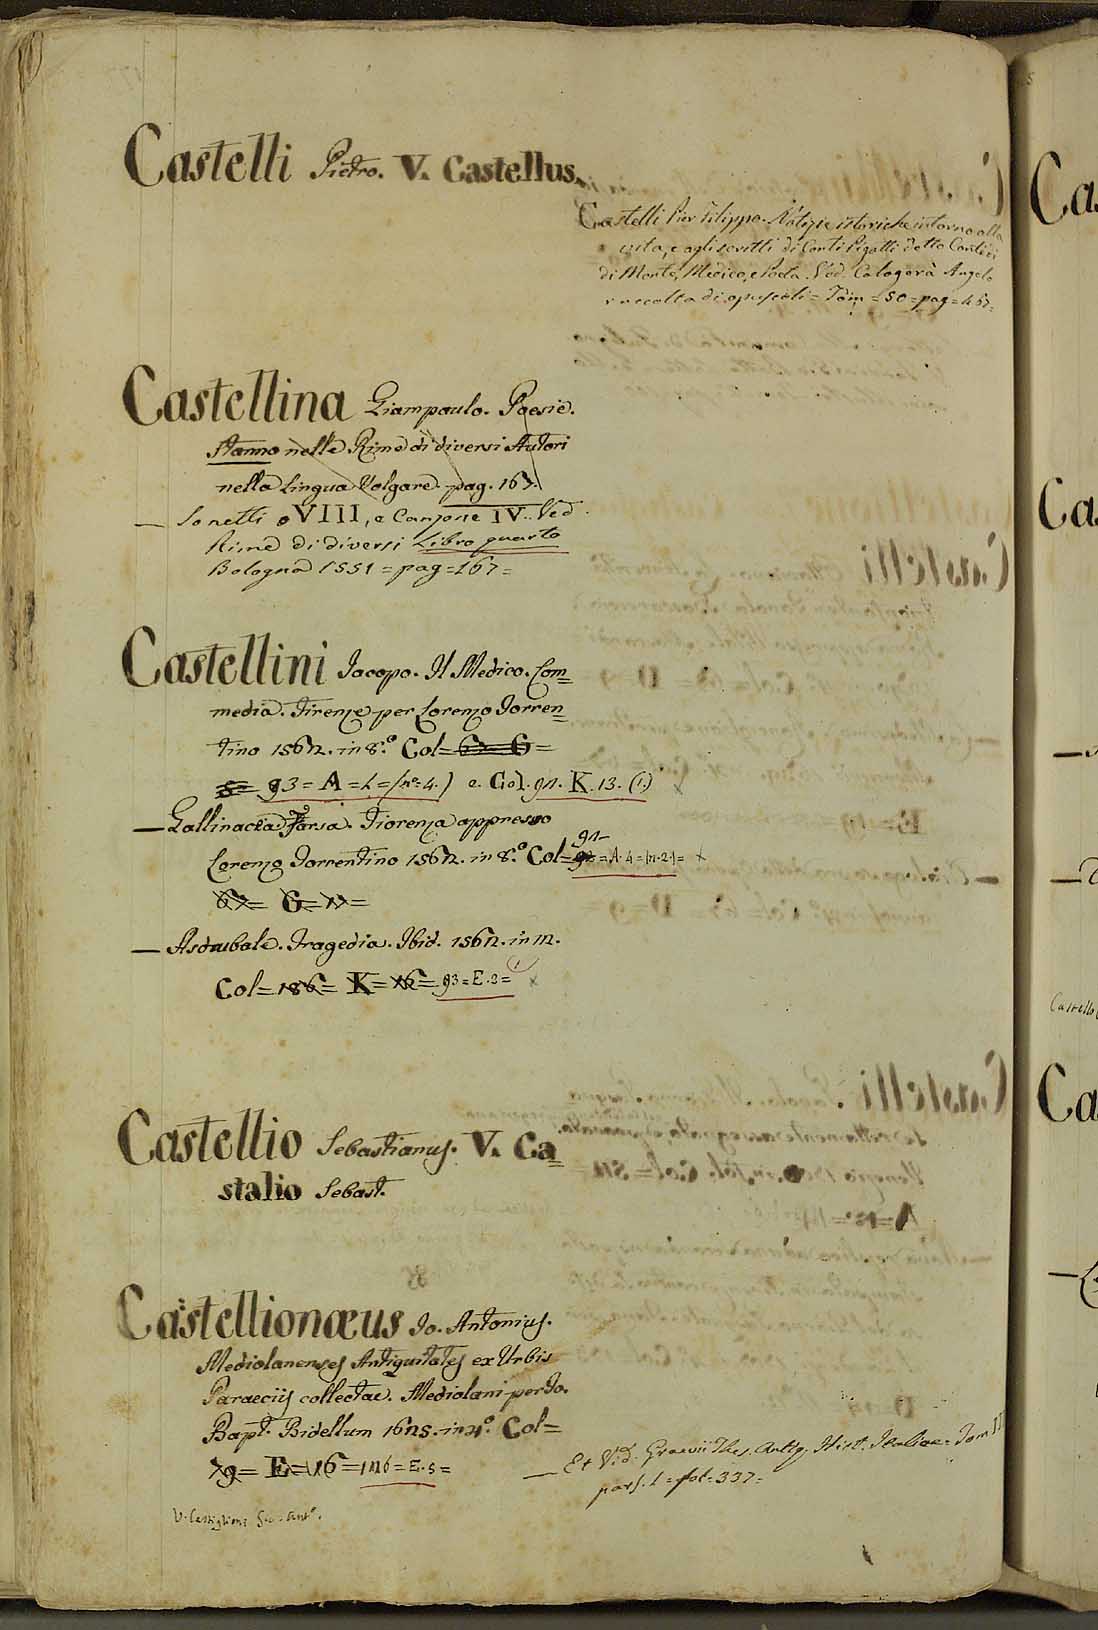 Castelli Pietro. V. Castellus.
Castelli Pier Filippo. Notizie istoriche intorno alla
vita, e agli scritti di Conti Pigatti detto
di Monte, Medico, e Poeta. Ved. Calogerà Angelo
raccolta di opuscoli = Tom = 50 = pag = 467 =
Castellina Giampaulo. Poesie.
stanno nelle Rime di diversi Autori
nella Lingua Volgare. pag. 167.
— Sonetti VIII, e Canzone IV. Ved
Rime di diversi Libro quarto
Bologna 1551 = pag = 167 =
Castellini Jacopo. Il Medico. Com=
media. Firenze per Lorenzo Torren=
tino 1562. in 8.º Col=
93 = A = 4 = (nº 4.) e. Col. 92. K. 13. (1.)
— Gallinacea Farsa. Fiorenza appresso
92
Lorenzo Torrentino 1562. in 8.º Col= = A. 4 = (n. 2.) =
67 = G = 12 =
— Asdrubale. Tragedia. Ibid. 1562. in 12.
Col= 186 = K = 16 = 93 = E. 2 =
Castellio Sebastianus. V. Ca=
stalio Sebast.
Castellionæus Jo. Antonius.
Mediolanenses Antiquitates ex Urbis
Paraeciis collectae. Mediolani per Jo.
Bapt. Bidellum 1625. in 4.º Col=
79 = E = 16 = 126 = E. 5 =
— Et Vid. Graevii Thes. Antiq. Hist. Italiae = Tom II
pars. 1 = fol = 337 =
V. Castiglione Gio. Antº.
Ca
Ca
Castello
Ca